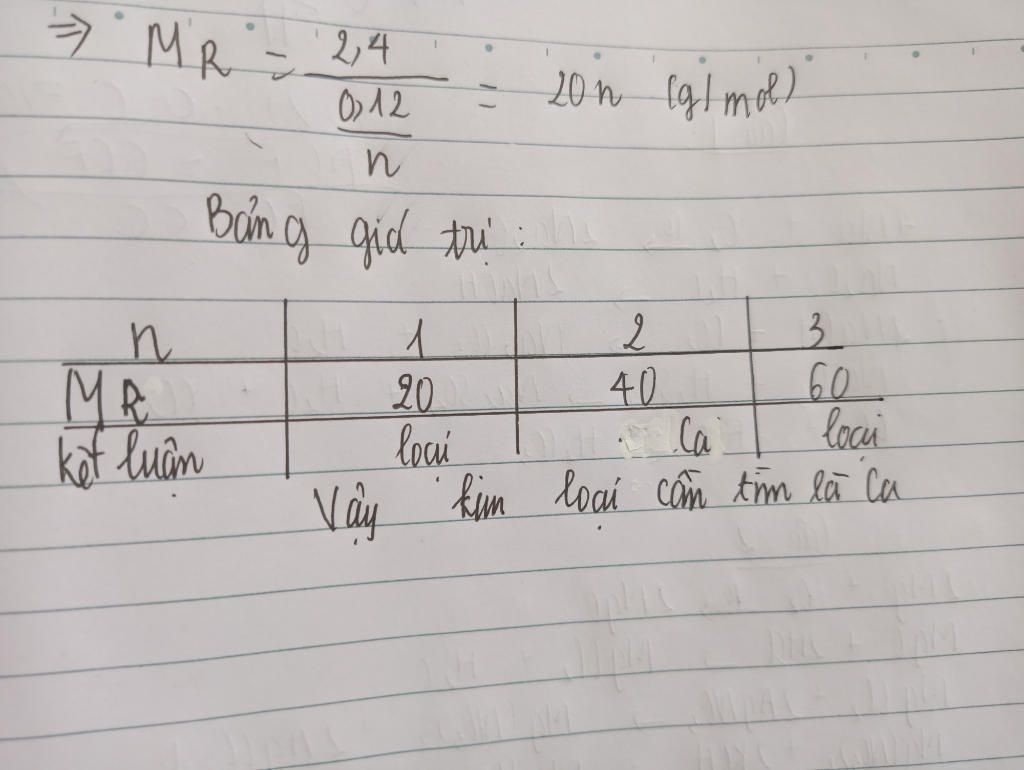 ⇒ M R = 2,4 / (0,12 / n) = 20 n (g/mol)
Bảng giá trị :
n 1 2 3
M R 20 40 60
kết luận loại Ca loại
Vậy kim loại cần tìm là Ca